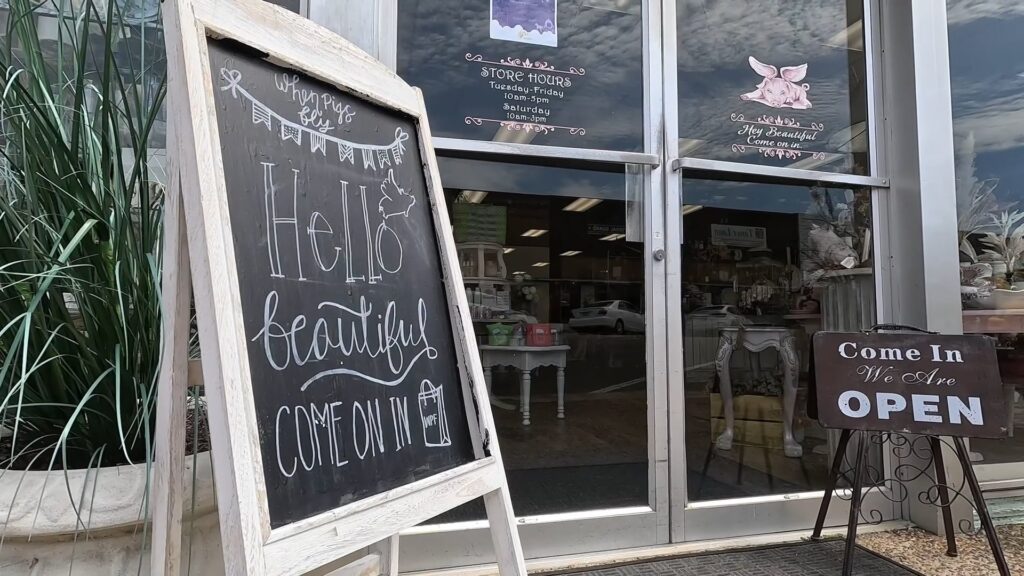 When Pigs
fly
Hello
beautiful
COME ON IN
WPF
STORE HOURS
Tuesday-Friday
10am-5pm
Saturday
10am-3pm
Hey Beautiful
Come on in.
Come In
We Are
OPEN